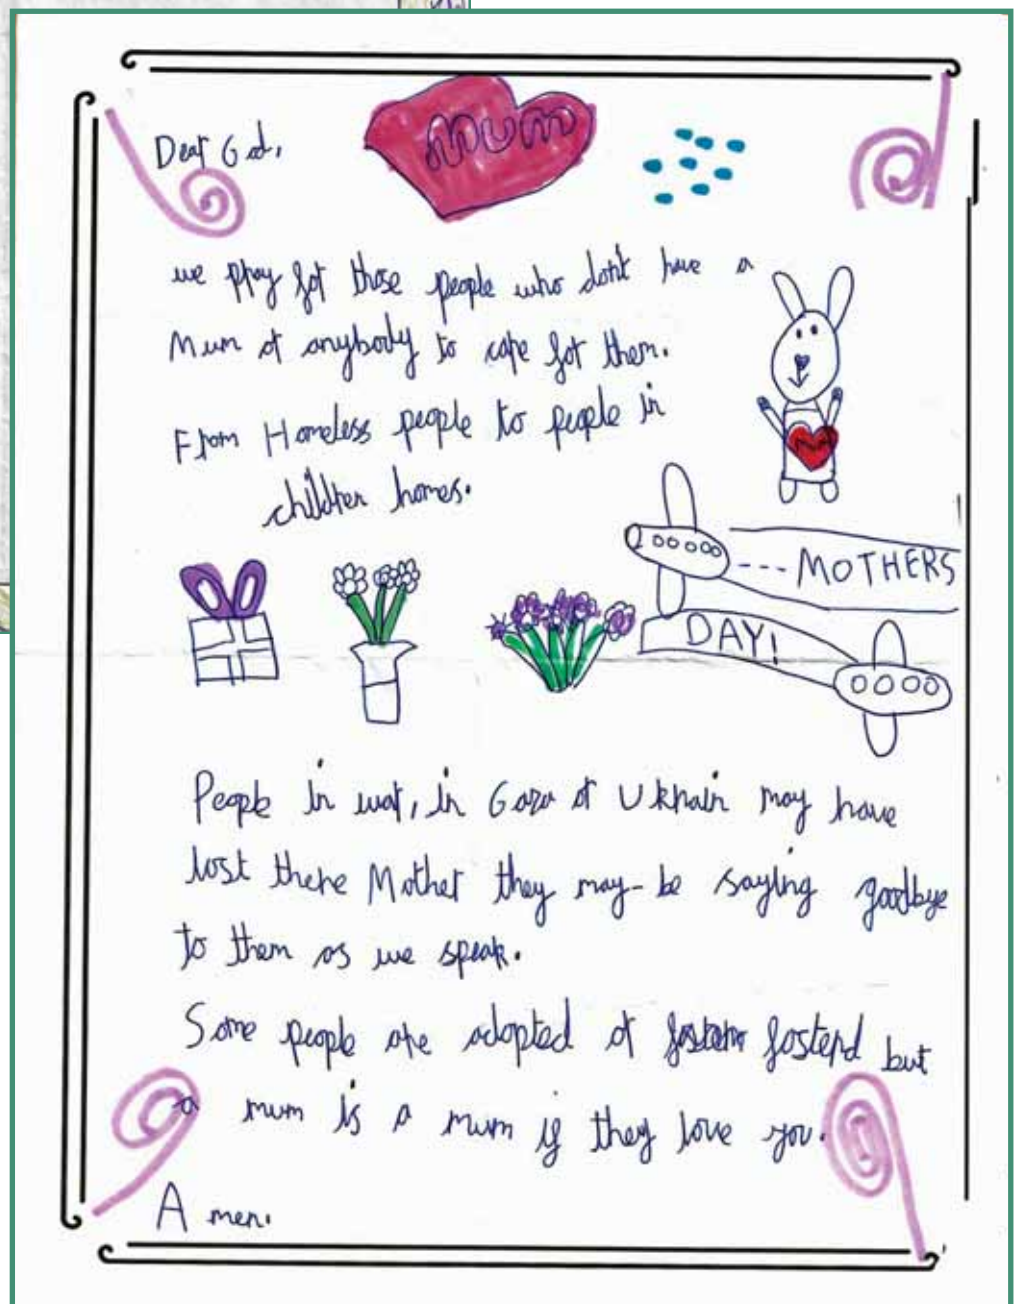 MUM
Dear God,
we pray for those people who don't have a
Mum or anybody to care for them.
From Homeless people to people in
children homes.
---MOTHERS
DAY!
People in war, in Gaza or Ukrain may have
lost there Mother they may be saying goodbye
to them as we speak.
Some people are adopted or fosterd but
a mum is a mum if they love you.
Amen.